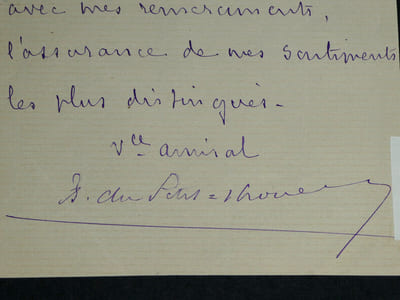 avec mes remerciements,
l'assurance de mes sentiments
les plus distingués.
Vce amiral
B. du Petit=Thouars